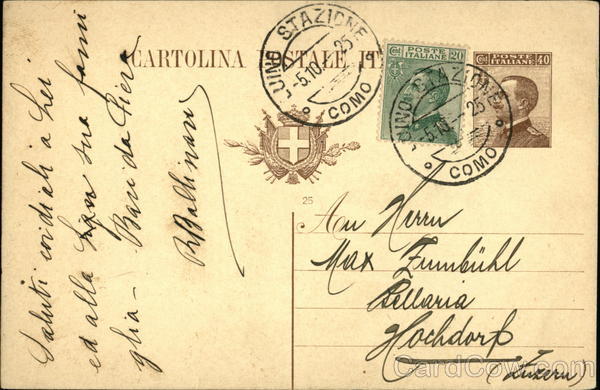 CARTOLINA POSTALE IT
LUINO STAZIONE
-5.10. -25
COMO
POSTE ITALIANE 20
LUINO STAZIONE
-5.10. -25
COMO
POSTE ITALIANE 40
25
An Herrn
Max Zumbühl
Bellaria
Hochdorf
(Luzern)
Saluti cordiali a Lei
ed alla sua fami
glia - Baci da Piera
CardCow.com